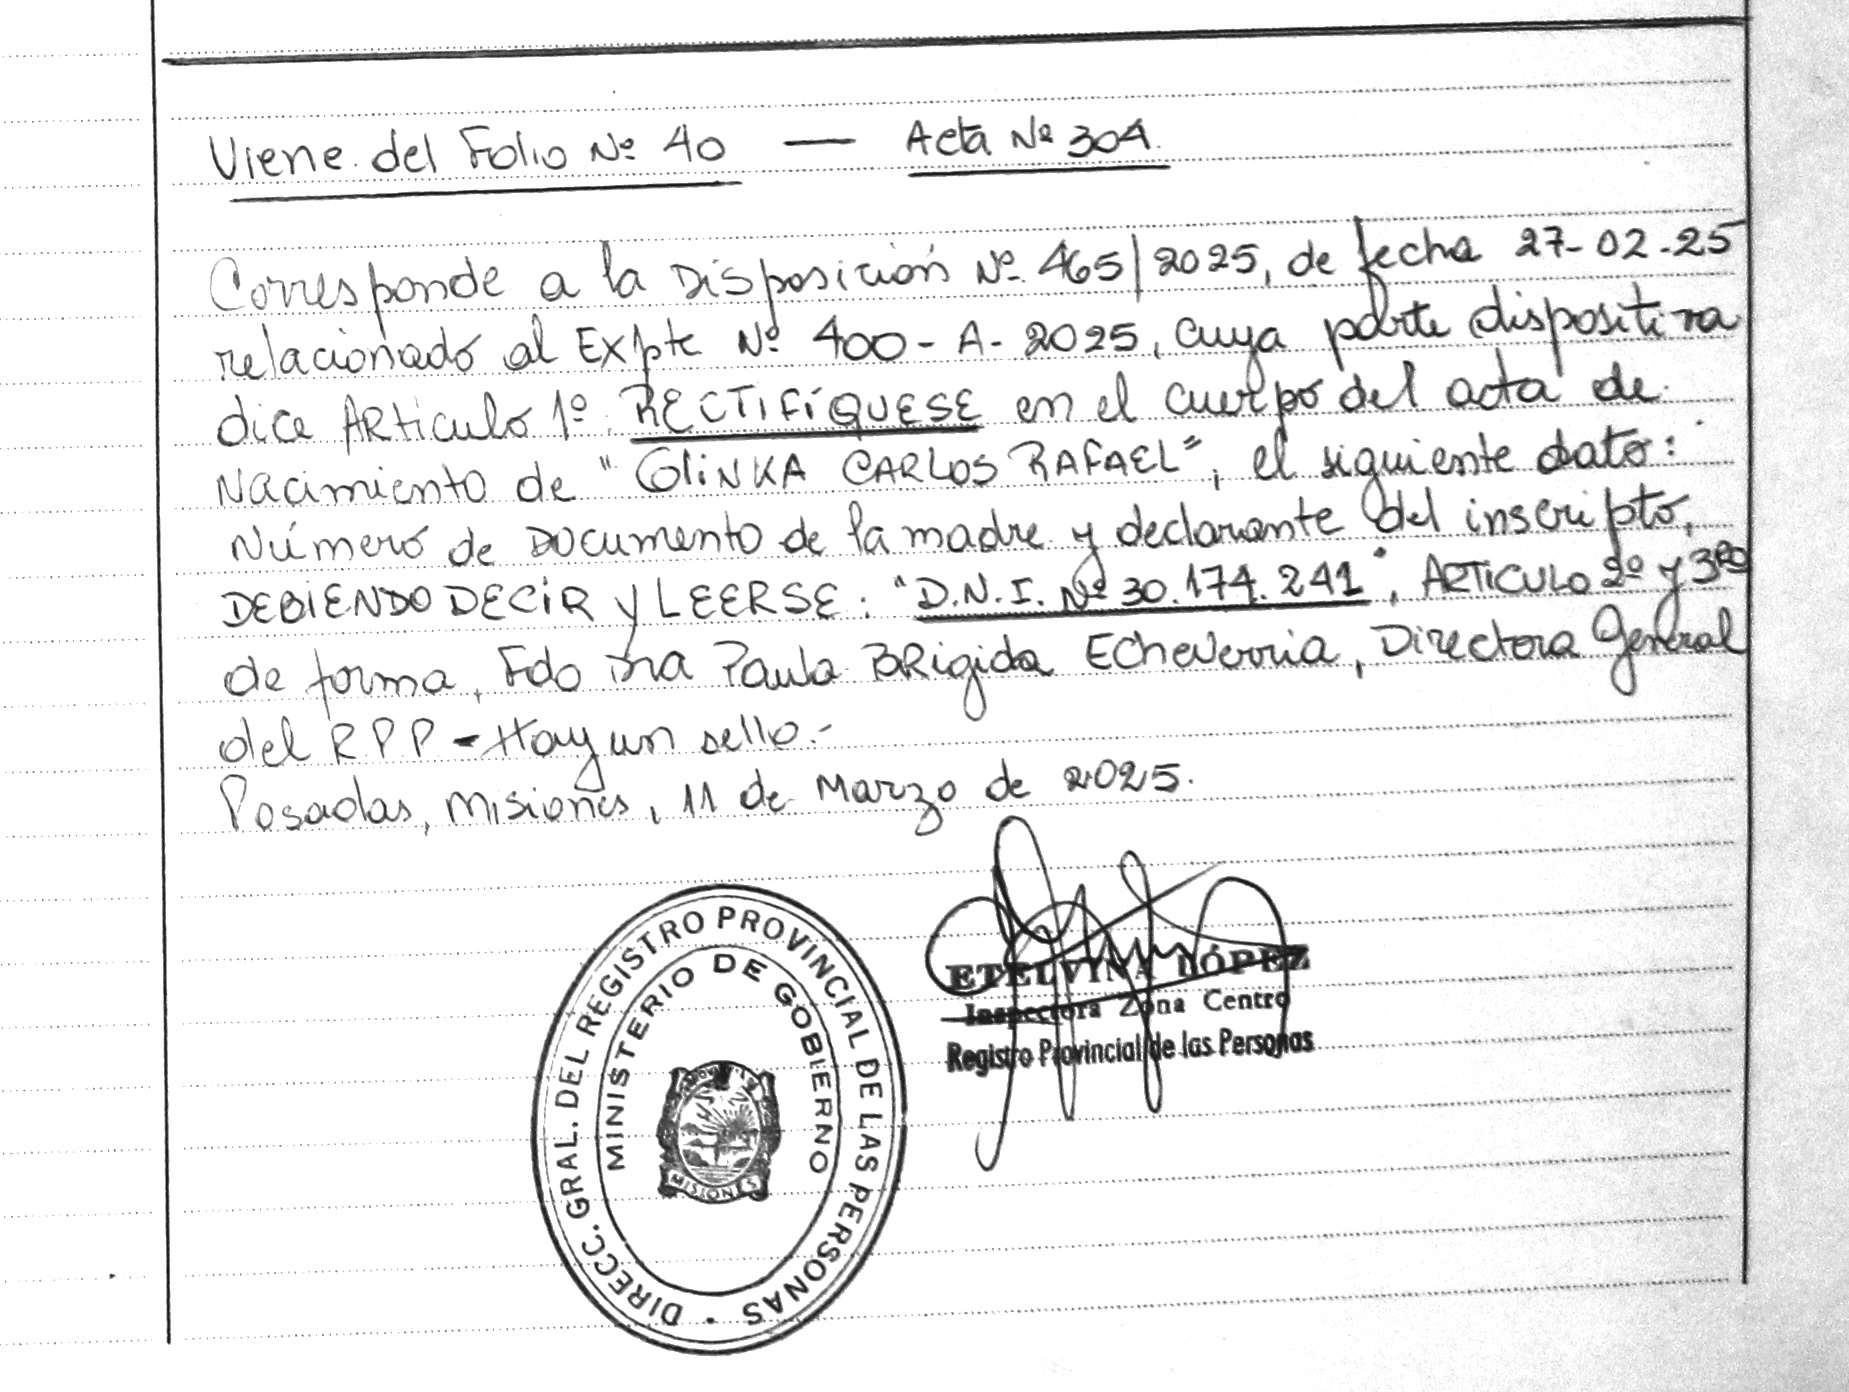 Viene del Folio Nº 40 — Acta Nº 304.
Corresponde a la Disposición Nº 465/2025, de fecha 27-02-25
relacionado al Expte Nº 400-A-2025, cuya parte dispositiva
dice ARticulo 1º RECTIFÍQUESE en el cuerpo del acta de
Nacimiento de "GLINKA CARLOS RAFAEL", el siguiente dato:
Número de Documento de la madre y declarante del inscripto,
DEBIENDO DECIR y LEERSE: "D.N.I. Nº 30.174.241", ARTICULO 2º y 3ro
de forma, Fdo Dra Paula BRigida Echeverria, Directora General
del RPP - Hay un sello.-
Posadas, Misiones, 11 de Marzo de 2025.
ETELVINA LÓPEZ
Inspectora Zona Centro
Registro Provincial de las Personas
DIRECC. GRAL. DEL REGISTRO PROVINCIAL DE LAS PERSONAS
MINISTERIO DE GOBIERNO
MISIONES